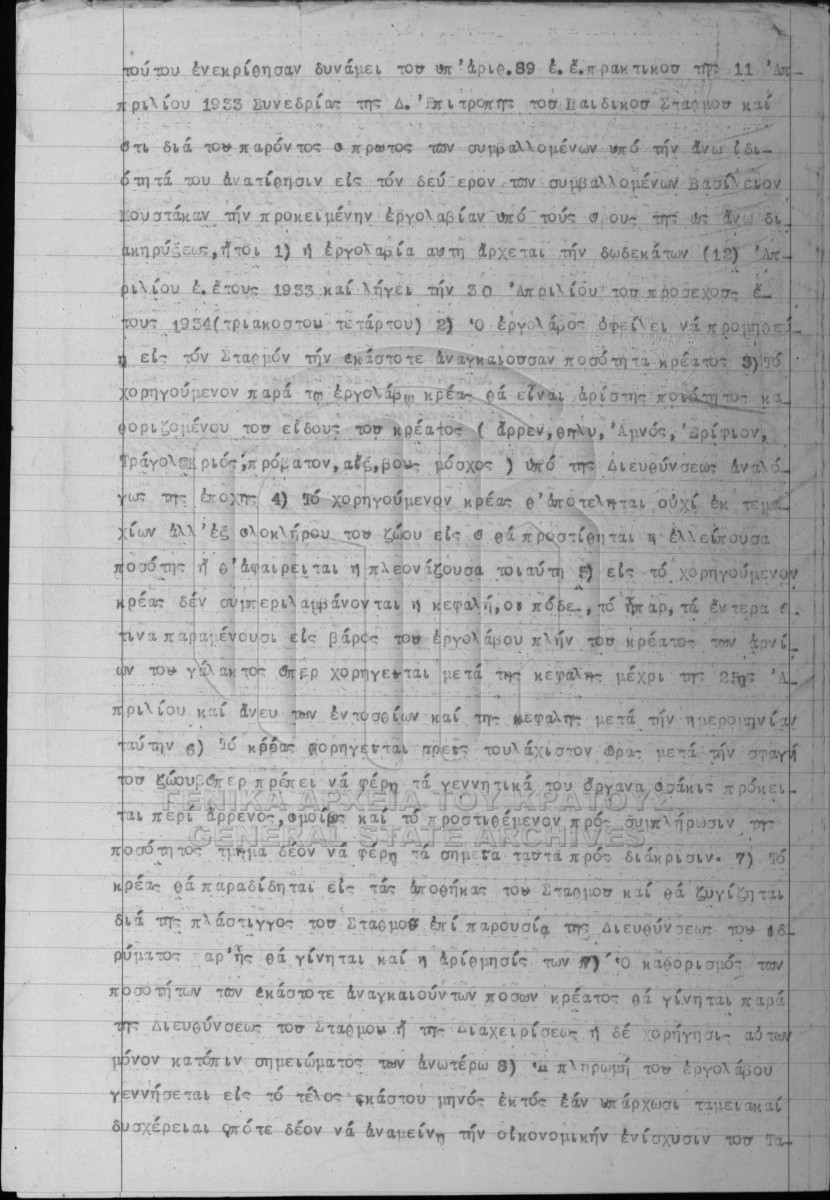 τούτου ἐνεκρίθησαν δυνάμει του υπ'άριθ.89 ἐ.ἔ.πρακτικου τῆς 11 'Απ-
πριλίου 1933 Συνεδρίας της Δ.'Επιτροπῆς του Παιδικου Σταθμου καί
οτι διά του παρόντος ο πρωτος των συμβαλλομένων υπό τήν ἄνω ἰδι-
ότητά του ἀνατίθησιν εἰς τόν δεύ ερον των συμβαλλομένων Βασίλειον
Μουστάκαν τήν προκειμένην ἐργολαβίαν υπό τούς ορους της ως ἄνω δι
ακηρύξεως,ἤτοι 1) ἡ ἐργολαβία αυτη ἄρχεται τήν δωδεκάτων (12) 'Απ-
ριλίου ἐ.ἔτους 1933 καί λήγει τήν 30 'Απριλίου του προσεχους ἔ-
τους 1934(τριακοστου τετάρτου) 2) 'Ο ἐργολάβος ὀφείλει νά προμηθεύ
η εἰς τόν Σταθμόν τήν εκάστοτε ἀναγκαιουσαν ποσότητα κρέατος 3)Τό
χορηγούμενον παρά τω ἐργολάβω κρέας θά εἶναι ἀρίστης ποιότητος κα-
θοριζομένου του εἴδους του κρέατος ( ἄρρεν,θηλυ,'Αμνός,'Ερίφιον,
Τράγολ,κριός,πρόβατον,αἴξ,βους μόσχος ) υπό της Διευθύνσεως ἀναλό-
γως της ἐποχης 4) Τό χορηγούμενον κρέας θ'ἀποτεληται ουχί ἐκ τεμα-
χίων ἀλλ'ἐξ ολοκλήρου του ζώου εἰς ο θά προστίθηται η ἐλλείπουσα
ποσότης ἤ θ'ἀφαιρειται η πλεονάζουσα τοιαύτη 5) εἰς τό χορηγούμενον
κρέας δέν συμπεριλαμβάνονται η κεφαλή,οι πόδε-,τό ἧπαρ,τά ἔντερα α
τινα παραμένουσι εἰς βάρος του ἐργολάβου πλήν του κρέατος των ἀρνί-
ων του γάλακτος οπερ χορηγειται μετά της κεφαλης μέχρι της 25ης 'Α-
πριλίου καί ἄνευ των ἐντοσθίων καί της κεφαλης μετά τήν ημερομηνίαν
ταύτην 6) Τό κρέας χορηγειται τρεις τουλάχιστον ωρας μετά τήν σφαγή
του ζώου οπερ πρέπει νά φέρη τά γεννητικά του ὄργανα οσάκις πρόκει-
ται περί ἄρρενος,ομοίως καί τό προστιθέμενον πρός συμπλήρωσιν της
ποσότητος τμημα δέον νά φέρη τά σημεια ταυτά πρός διάκρισιν. 7) Τό
κρέας θά παραδίδηται εἰς τάς ἀποθήκας του Σταθμου καί θά ζυγίζηται
διά της πλάστιγγος του Σταθμου ἐπί παρουσία της Διευθύνσεως του ιδ-
ρύματος παρ'ἧς θά γίνηται καί η ἀρίθμησίς των 7) 'Ο καθορισμός των
ποσοτήτων των εκάστοτε ἀναγκαιούντων ποσων κρέατος θά γίνηται παρά
της Διευθύνσεως του Σταθμου ἤ της Διαχειρίσεως ἡ δέ χορήγησις αὐτων
μόνον κατόπιν σημειώματος των ἀνωτέρω 8) 'Η πληρωμή του ἐργολάβου
γεννήσεται εἰς τό τέλος εκάστου μηνός ἐκτός ἐάν υπάρχωσι ταμειακαί
δυσχέρειαι οπότε δέον νά ἀναμείνη τήν οἰκονομικήν ἐνίσχυσιν του Τα-
ΓΕΝΙΚΑ ΑΡΧΕΙΑ ΤΟΥ ΚΡΑΤΟΥΣ
GENERAL STATE ARCHIVES